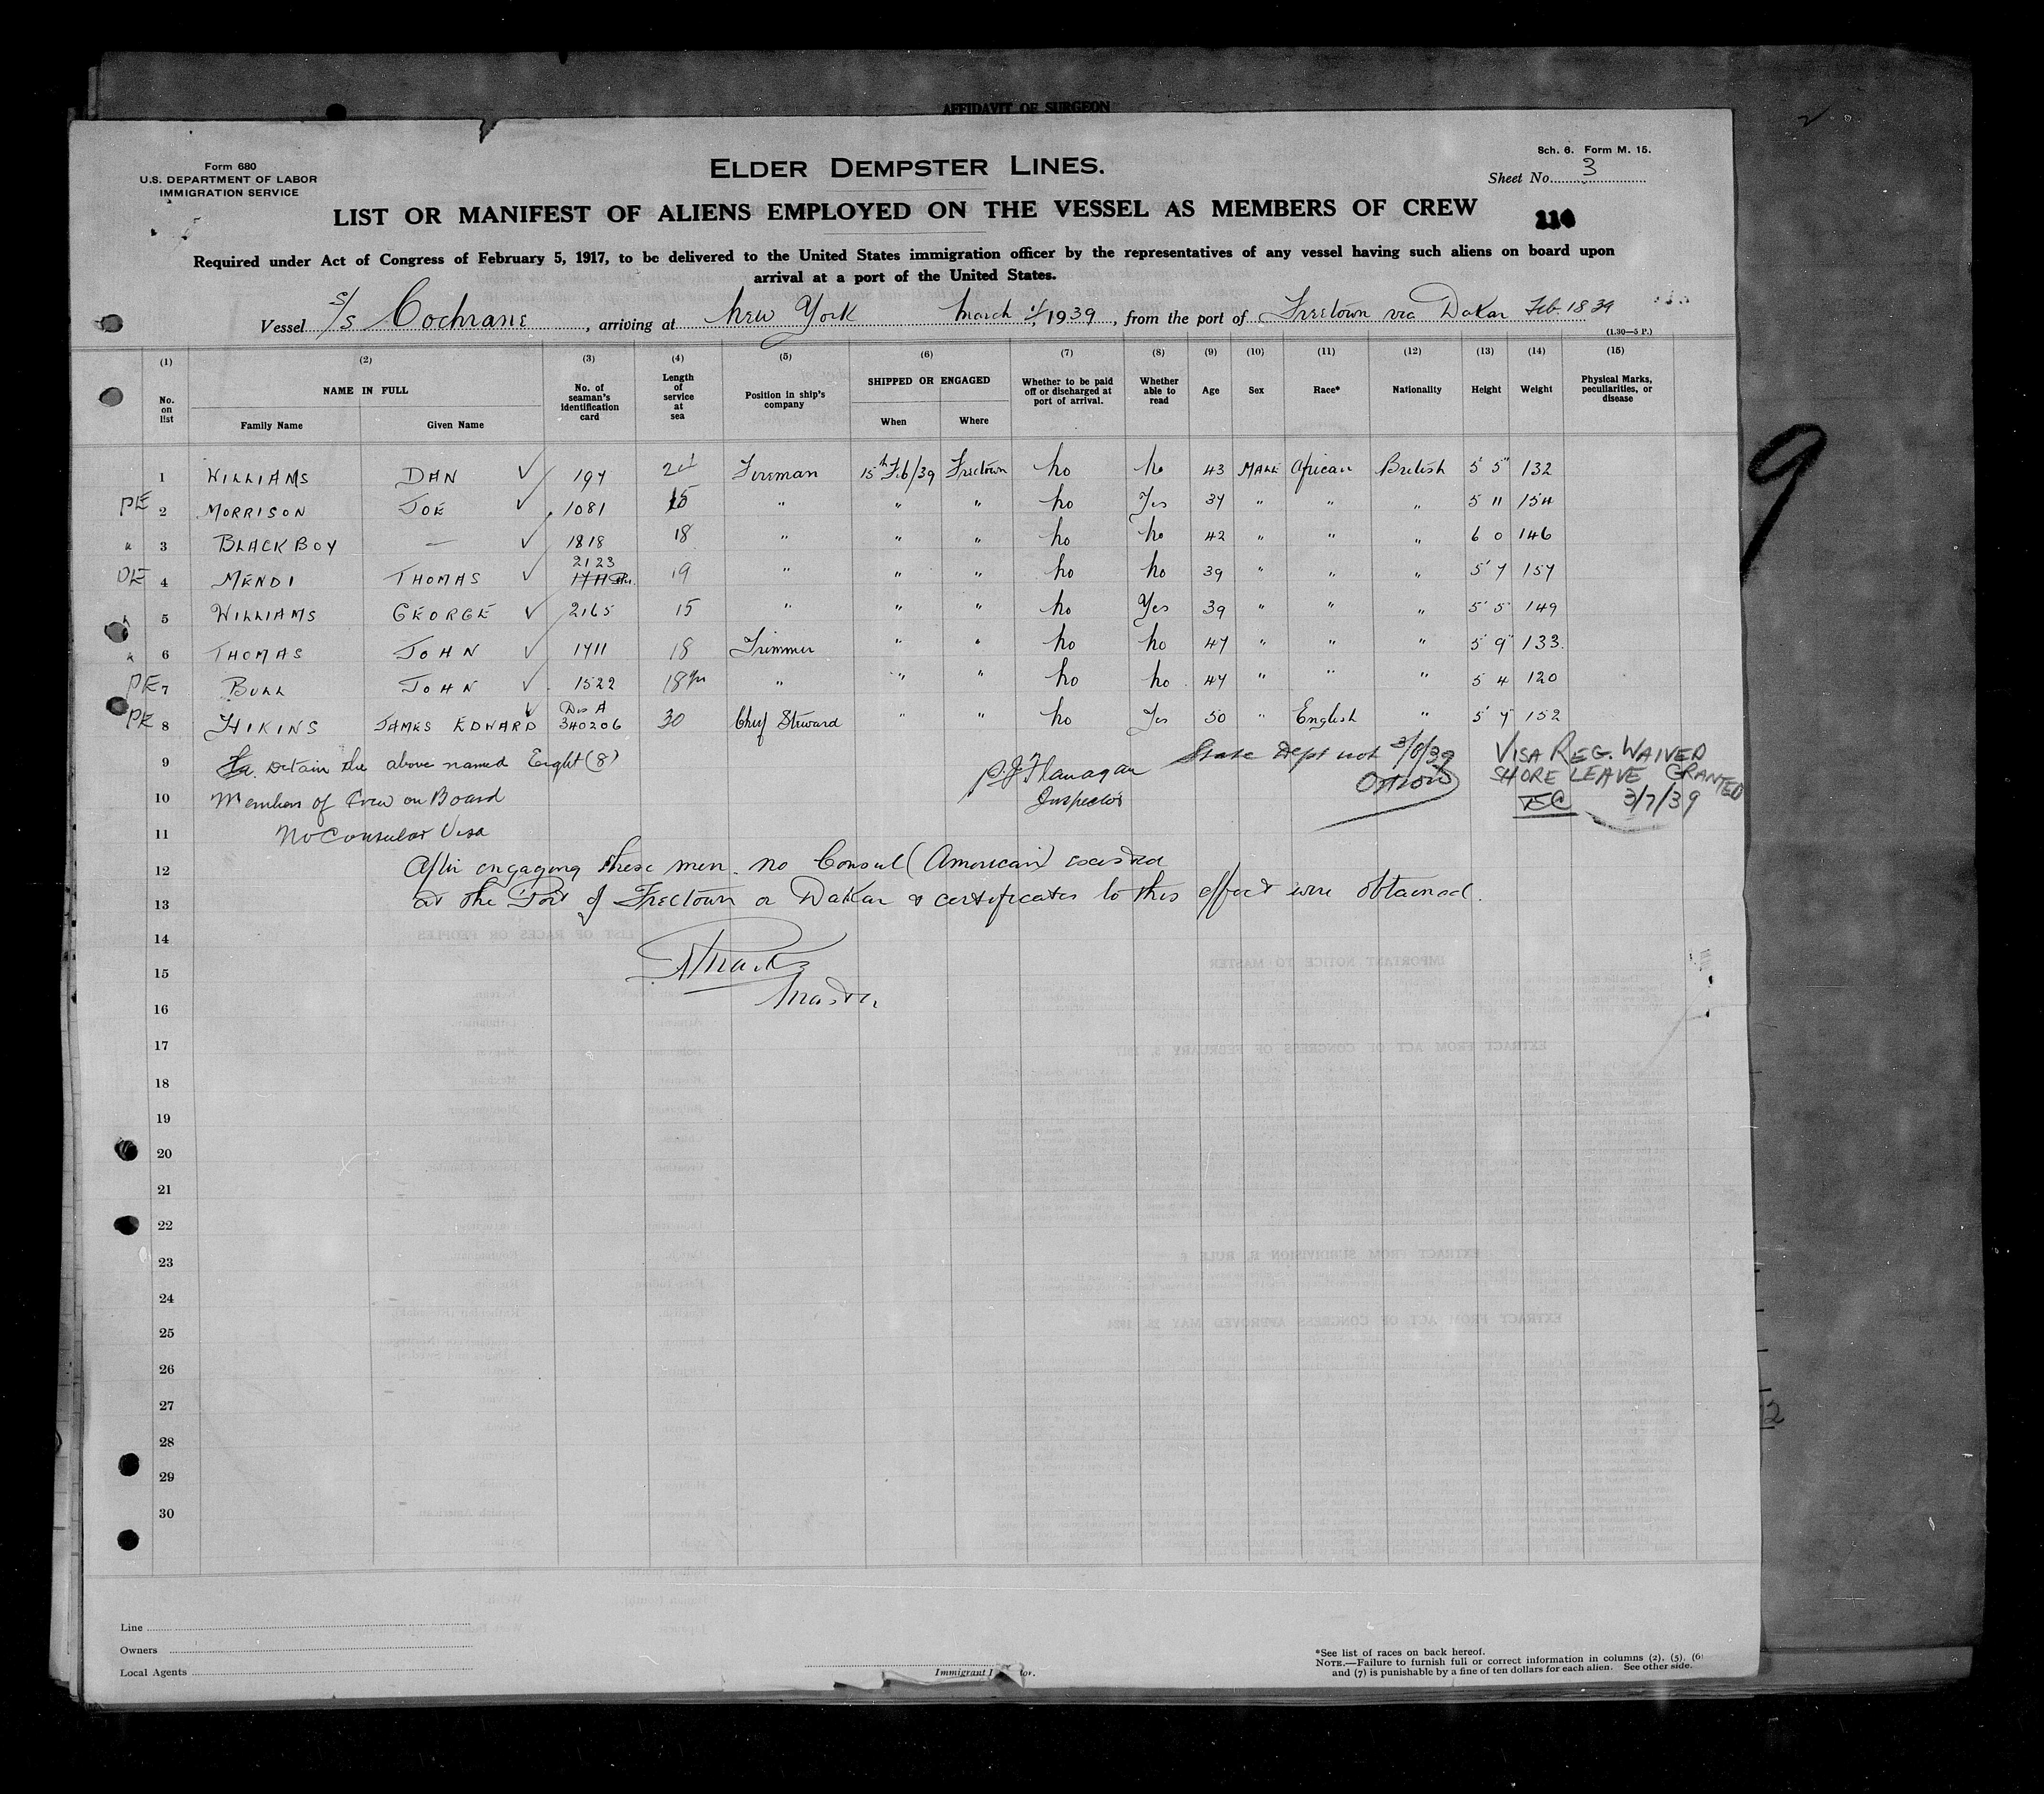 AFFIDAVIT OF SURGEON
Form 680
U.S. DEPARTMENT OF LABOR
IMMIGRATION SERVICE
ELDER DEMPSTER LINES.
Sch. 6. Form M. 15.
Sheet No. 3
LIST OR MANIFEST OF ALIENS EMPLOYED ON THE VESSEL AS MEMBERS OF CREW
110
Required under Act of Congress of February 5, 1917, to be delivered to the United States immigration officer by the representatives of any vessel having such aliens on board upon
arrival at a port of the United States.
Vessel S/S Cochrane, arriving at New York March 1939, from the port of Freetown via Dakar Feb. 18 39
(1.30—5 P.)
(1) (2) (3) (4) (5) (6) (7) (8) (9) (10) (11) (12) (13) (14) (15)
No. on list
NAME IN FULL
Family Name Given Name
No. of seaman's identification card
Length of service at sea
Position in ship's company
SHIPPED OR ENGAGED
When Where
Whether to be paid off or discharged at port of arrival.
Whether able to read
Age Sex Race* Nationality Height Weight
Physical Marks, peculiarities, or disease
1 WILLIAMS DAN ✓ 197 21 Fireman 15th Feb/39 Freetown No No 43 MALE African British 5' 5" 132
PE 2 MORRISON JOE ✓ 1081 15 " " " No Yes 37 " " " 5 11 154
" 3 BLACKBOY — ✓ 1818 18 " " " No No 42 " " " 6 0 146
2123
OE 4 MENDI THOMAS ✓ 1711 19 " " " No No 39 " " " 5' 7 157
5 WILLIAMS GEORGE ✓ 2165 15 " " " No Yes 39 " " " 5' 5" 149
6 THOMAS JOHN ✓ 1711 18 Trimmer " " No No 47 " " " 5' 9" 133.
PE 7 BULL JOHN ✓ 1522 18 yrs " " " No No 47 " " " 5 4 120
Dis A
PE 8 HIKINS JAMES EDWARD ✓ 340206 30 Chief Steward " " No Yes 50 " English " 5' 7" 152
9 Detain the above named Eight (8)
10 Members of Crew on Board
11 No Consular Visa
P.J. Flanagan
Inspector
State Dept not 3/8/39
VISA REG. WAIVED
SHORE LEAVE GRANTED
3/7/39
9
12 After engaging these men. no Consul (American) existed
13 at the Port of Freetown or Dakar & certificates to this effect were obtained.
14
15
Master
16
17
18
19
20
21
22
23
24
25
26
27
28
29
30
Line
Owners
Local Agents
*See list of races on back hereof.
NOTE.—Failure to furnish full or correct information in columns (2), (5), (6)
and (7) is punishable by a fine of ten dollars for each alien. See other side.